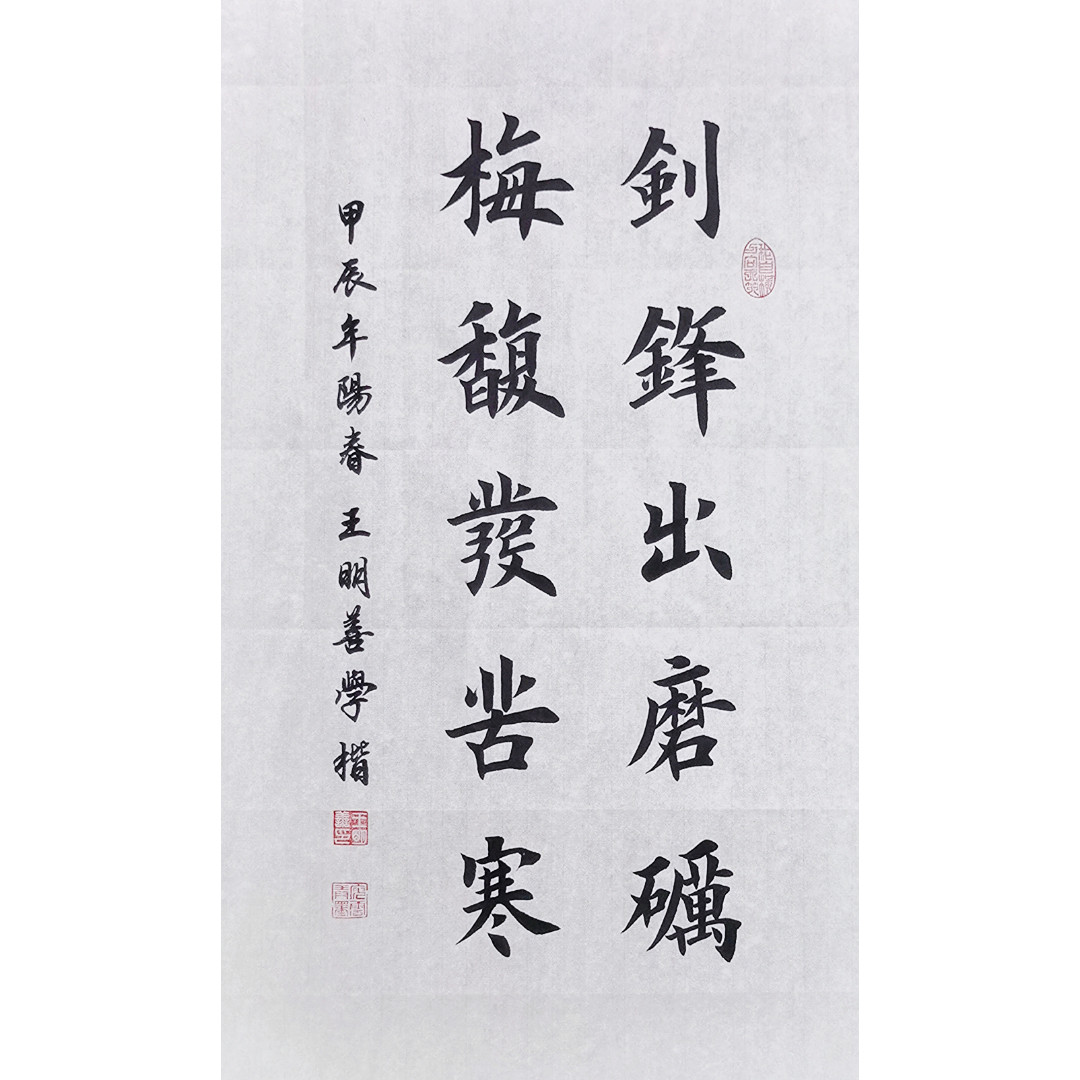 釗鋒出磨礪
梅馥發苦寒
甲辰年陽春王明善學楷